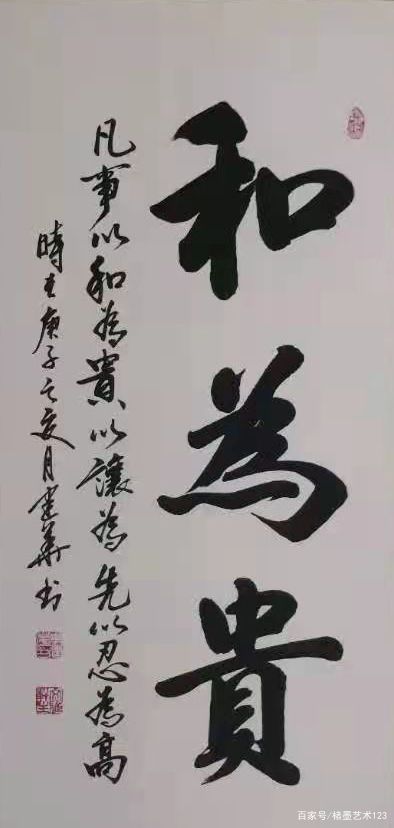 和為貴
凡事以和為貴以讓為先以忍為高
時在庚子之夏月建華书
百家号/楮墨艺术123